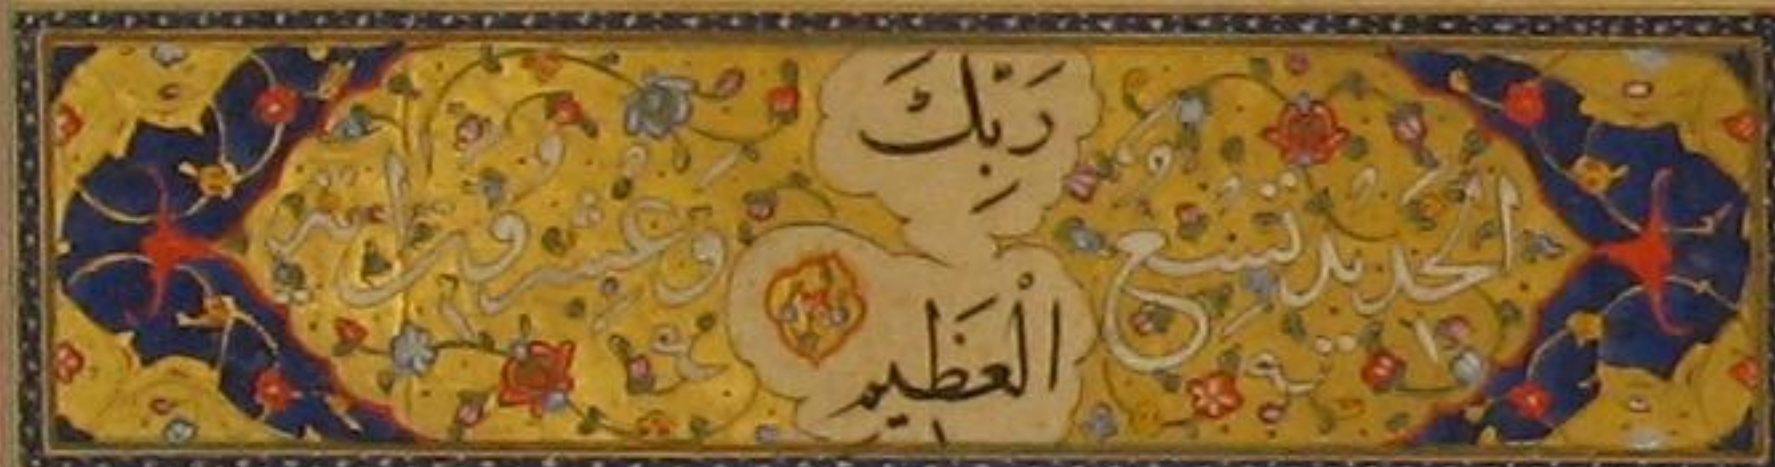 رَبِّكَ
الْعَظِيمِ
الحديد تسع وعشرون